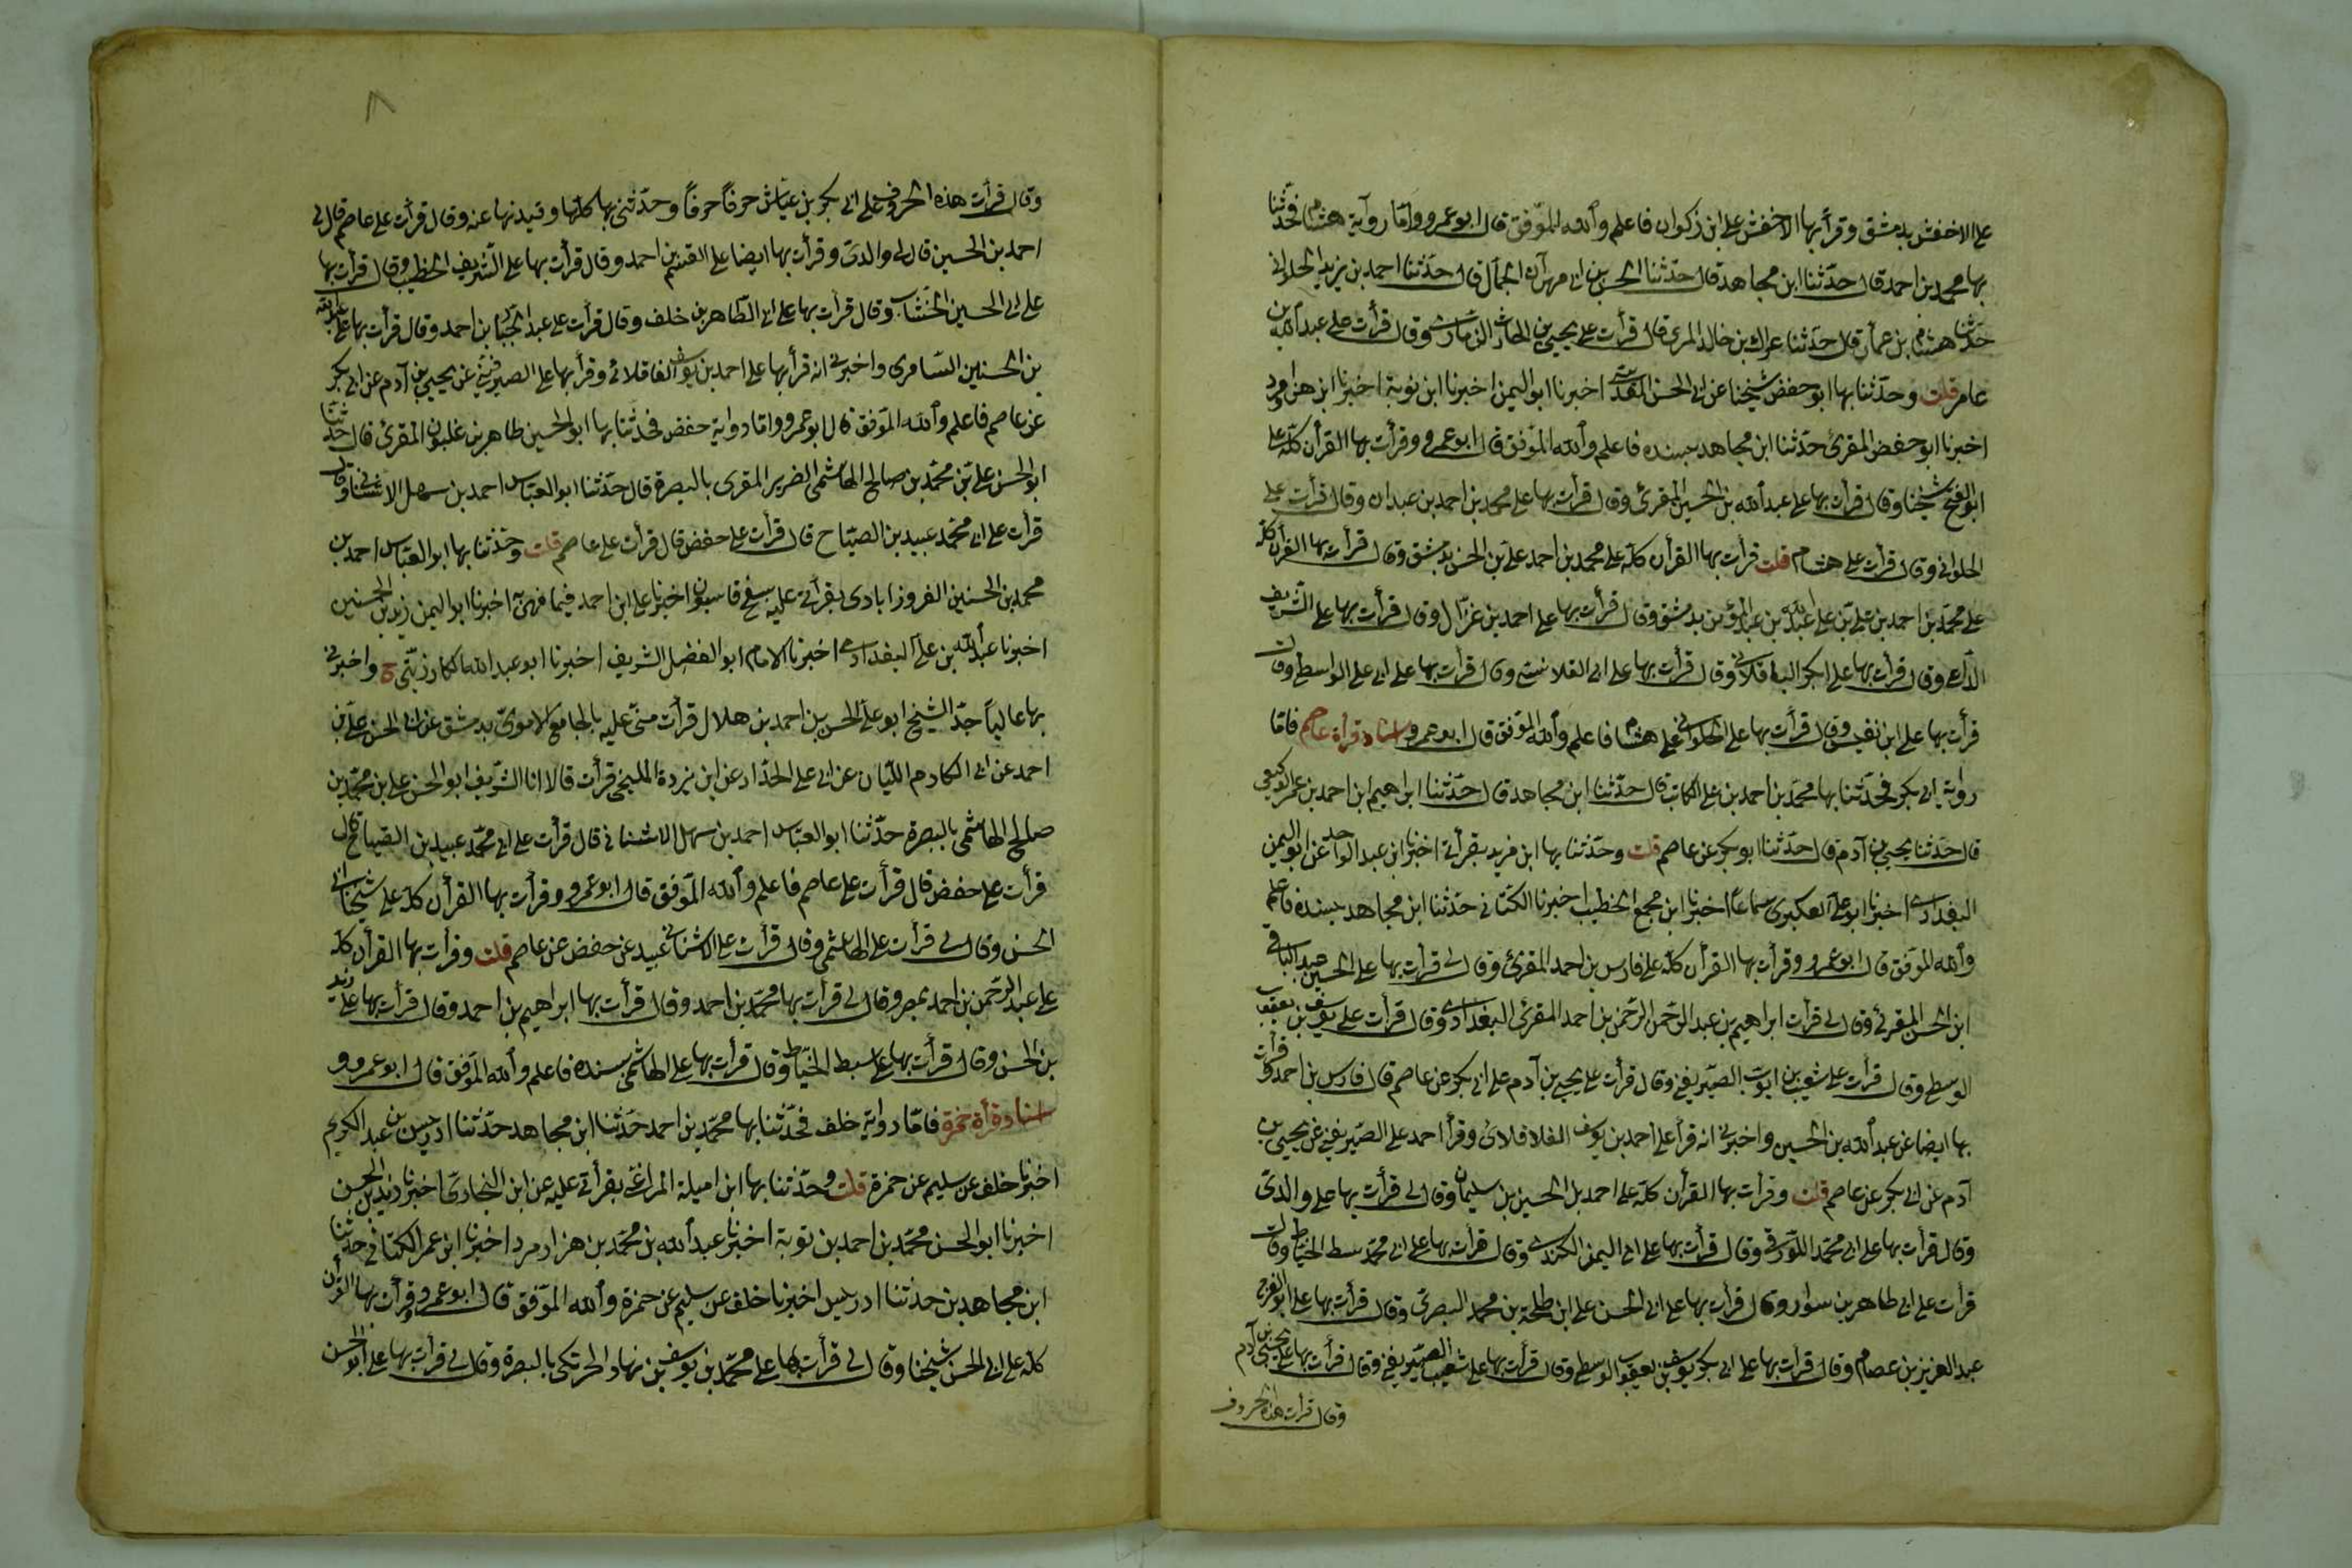 على الاخفش بدمشق وقرأ بها الاخفش على ابن ذكوان فاعلم والله الموفق قال ابو عمرو واما رواية هشام فحدثنا
بها محمد بن احمد قال حدثنا ابن مجاهد قال حدثنا الحسن بن ابى مهران الجمال قال حدثنا احمد بن يزيد الحلوانى
حدثنا هشام بن عمار قال حدثنا عراك بن خالد المرى قال قرأت على يحيى بن الحارث الذمارى وقال قرأت على عبد الله بن
عامر قلت وحدثنا بها ابو حفص شيخنا عن ابى الحسن المقدسى اخبرنا ابو اليمن اخبرنا ابن توبة اخبرنا ابن هزامرد
اخبرنا ابو حفص المقرئ حدثنا ابن مجاهد بسنده فاعلم والله الموفق قال ابو عمرو وقرأت بها القرأن كله على
ابو الفتح شيخنا وقال قرأت بها على عبد الله بن الحسين المقرئ وقال قرأت بها على محمد بن احمد بن عبدان وقال قرأت على
الحلوانى وقال قرأت على هشام قلت قرأت بها القرأن كله على محمد بن احمد على بن الحسن بدمشق وقال قرأت بها القرأن كله
على محمد بن احمد بن على بن على عبد الله بن عبد المؤمن بدمشق وقال قرأت بها على احمد بن غزال وقال قرأت بها على الشريف
الداعى وقال قرأت بها على ابكر الباقلانى وقال قرأت بها على ابى القلانسى وقال قرأت بها على ابى على الواسطى وقال
قرأت بها على ابن نفيس وقال قرأت بها على الحلوانى على هشام فاعلم والله الموفق قال ابو عمرو اسناد قرأة عاصم فاما
رواية ابى بكر فحدثنا بها محمد بن احمد بن على الكاتب قال حدثنا ابن مجاهد قال حدثنا ابراهيم ابن احمد بن عمر الوكيعى
قال حدثنا يحيى بن آدم قال حدثنا ابو بكر عن عاصم قلت وحدثنا بها ابن مزيد بقرأتى اخبرنا ابن عبد الواحد عن ابو اليمن
البغدادى اخبرنا ابو على العكبرى سماعا اخبرنا ابن مجمع الخطيب اخبرنا الكتانى حدثنا ابن مجاهد بسنده فاعلم
والله الموفق قال ابو عمرو وقرأت بها القرأن كله على فارس بن احمد المقرئ وقال لى قرأت بها على الحسين عبد الباقى
ابن الحسن المقرئ وقال لى قرأت ابراهيم بن عبد الرحمن الرحمن بن احمد المقرئ البغدادى وقال قرأت على يوسف بن يعقوب
الوسطى وقال قرأت على شعيب بن ايوب الصيريفينى وقال قرأت على يحيى بن آدم على ابى بكر عن عاصم قال فارس بن احمد وقرأت
بها ايضا عن عبد الله بن الحسين واخبرنى انه قرأ على احمد بن يوسف القلافلائى وقرأ احمد على الصيريفينى عن يحيى بن
آدم عن ابى بكر عن عاصم قلت وقرأت بها القرأن كله على احمد بل الحسين بن سليمان وقال لى قرأت بها على والدى
وقال قرأت بها على ابى محمد اللورقى وقال قرأت بها على ابى اليمن الكندى وقال قرأت بها على ابى محمد سبط الخياط وقال
قرأت على ابى طاهر بن سوار وقال قرأت بها على ابى الحسن على ابن طلحة بن محمد البصرى وقال قرأت بها على ابو الفرج
عبد العزيز بن عصام وقال قرأت بها على ابى بكر يوسف بن يعقوب الوسطى وقال قرأت بها على شعيب الصيريفينى وقال قرأت بها على يحيى بن آدم
وقال قرأت هذه الحروف
٨
وقال قرأت هذه الحروف على ابى بكر بن عياش حرفا حرفا وحدثنى بها كلها وقيدتها عنه وقال قرأت على عاصم قال لى
احمد بن الحسين قال لى والدى وقرأت بها ايضا على القسم بن احمد وقال قرأت بها على الشريف الخطيب وقال قرأت بها
على ابى الحسين الخشاب وقال قرأت بها على ابى الطاهر بن خلف وقال قرأت على عبد الجبار بن احمد وقال قرأت بها على عبد الله
بن الحسنين السامرى واخبرنى انه قرأ بها على احمد بن يوسف القافلائى وقرأ بها على الصيرفينى عن يحيى بن آدم عن ابى بكر
عن عاصم فاعلم والله الموفق قال ابو عمرو واما رواية حفص فحدثنا بها ابو الحسين طاهر بن غلبون المقرئ قال حدثنا
ابو الحسن على بن محمد بن صالح الهاشمى الضرير المقرى بالبصرة قال حدثنا ابو العباس احمد بن سهل الاشنانى وقال
قرأت على ابى محمد عبيد بن الصباح قال قرأت على حفص قال قرأت على عاصم قلت وحدثنا بها ابو العباس احمد بن
محمد بن الحسنين الفروزابادى بقرأتى عليه بسفح قاسيون اخبرنا على ابن احمد فيما قرئ اخبرنا ابو اليمن زيد بن الحسنين
اخبرنا عبد الله بن على البغدادى اخبرنا الامام ابو الفضل الشريف اخبرنا ابو عبد الله الكارزينى ح واخبرنى
بها عاليا جد الشيخ ابو على الحسن بن احمد بن هلال قرأت منى عليه بالجامع الاموى بدمشق عن ابى الحسن على بن
احمد عن ابى المكارم اللبان عن ابى على الحداد عن ابن يزدة المليحى قرأت قالا انا الشريف ابو الحسن على بن محمد بن
صالح الهاشمى بالبصرة حدثنا ابو العباس احمد بن سهل الاشنانى قال قرأت على ابى محمد عبيد بن الصباح قال
قرأت على حفص قال قرأت على عاصم فاعلم والله الموفق قال ابو عمرو وقرأت بها القرأن كله على شيخنا ابى
الحسن وقال لى قرأت على الهاشمى وقال قرأت على الاشنانى عبيد عن حفص عن عاصم قلت وقرأت بها القرأن كله
على عبد الرحمن بن احمد بمصر وقال لى قرأت بها محمد بن احمد وقال قرأت بها ابراهيم بن احمد وقال قرأت بها على زيد
بن الحسن وقال قرأت بها على سبط الخياط وقال قرأت بها على الهاشمى بسنده فاعلم والله الموفق قال ابو عمرو و
اسناد قرأة حمزة فاما رواية خلف فحدثنا بها محمد بن احمد حدثنا ابن مجاهد حدثنا ادريس بن عبد الكريم
اخبرنا خلف عن سليم عن حمزة قلت وحدثنا بها ابن اميلة المراغى بقرأتى عليه عن ابن النجارى اخبرنا زيد بن الحسن
اخبرنا ابو الحسن محمد بن احمد بن توبة اخبرنا عبد الله بن محمد بن هزارمرد اخبرنا ابن عمر الكتانى حدثنا
ابن مجاهد بن حدثنا ادريس اخبرنا خلف عن سليم عن حمزة والله الموفق قال ابو عمرو وقرأت بها القرأن
كله على ابى الحسن شيخنا وقال لى قرأت بها على محمد بن يوسف بن نهاد الحرتكى بالبصرة وقال لى قرأت بها على ابو الحسن